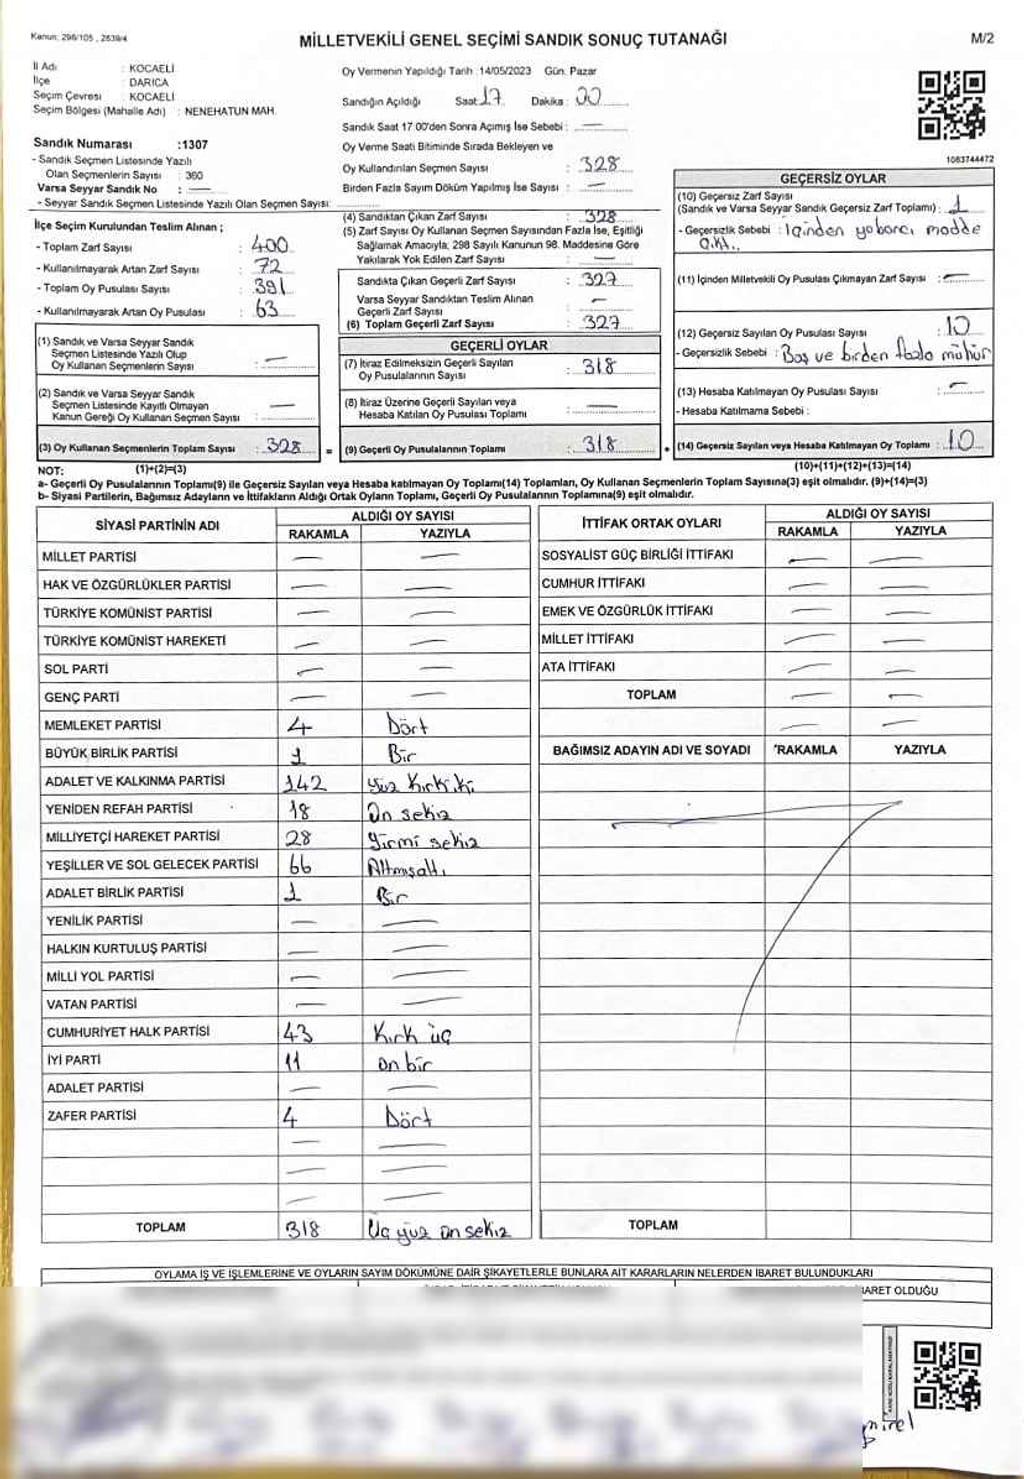 Kanun: 298/105 , 2839/4
MİLLETVEKİLİ GENEL SEÇİMİ SANDIK SONUÇ TUTANAĞI
M/2
İl Adı : KOCAELİ
İlçe : DARICA
Seçim Çevresi : KOCAELİ
Seçim Bölgesi (Mahalle Adı) : NENEHATUN MAH.
Sandık Numarası :1307
- Sandık Seçmen Listesinde Yazılı
Olan Seçmenlerin Sayısı : 360
Varsa Seyyar Sandık No : —
- Seyyar Sandık Seçmen Listesinde Yazılı Olan Seçmen Sayısı:
Oy Vermenin Yapıldığı Tarih :14/05/2023 Gün. Pazar
Sandığın Açıldığı Saat 17 Dakika : 00
Sandık Saat 17 00'den Sonra Açımış İse Sebebi : —
Oy Verme Saati Bitiminde Sırada Bekleyen ve
Oy Kullandırılan Seçmen Sayısı : 328
Birden Fazla Sayım Döküm Yapılmış İse Sayısı : —
1083744472
İlçe Seçim Kurulundan Teslim Alınan ;
- Toplam Zarf Sayısı : 400
- Kullanılmayarak Artan Zarf Sayısı : 72
- Toplam Oy Pusulası Sayısı : 391
- Kullanılmayarak Artan Oy Pusulası : 63
(1) Sandık ve Varsa Seyyar Sandık
Seçmen Listesinde Yazılı Olup
Oy Kullanan Seçmenlerin Sayısı : —
(2) Sandık ve Varsa Seyyar Sandık
Seçmen Listesinde Kayıtlı Olmayan
Kanun Gereği Oy Kullanan Seçmen Sayısı : —
(3) Oy Kullanan Seçmenlerin Toplam Sayısı : 328
(4) Sandıktan Çıkan Zarf Sayısı : 328
(5) Zarf Sayısı Oy Kullanan Seçmen Sayısından Fazla İse, Eşitliği
Sağlamak Amacıyla; 298 Sayılı Kanunun 98. Maddesine Göre
Yakılarak Yok Edilen Zarf Sayısı : —
Sandıkta Çıkan Geçerli Zarf Sayısı : 327
Varsa Seyyar Sandıktan Teslim Alınan
Geçerli Zarf Sayısı : —
(6) Toplam Geçerli Zarf Sayısı : 327
GEÇERLİ OYLAR
(7) İtiraz Edilmeksizin Geçerli Sayılan
Oy Pusulalarının Sayısı : 318
(8) İtiraz Üzerine Geçerli Sayılan veya
Hesaba Katılan Oy Pusulası Toplamı : —
= (9) Geçerli Oy Pusulalarının Toplamı : 318
GEÇERSİZ OYLAR
(10) Geçersiz Zarf Sayısı
(Sandık ve Varsa Seyyar Sandık Geçersiz Zarf Toplamı) : 1
- Geçersizlik Sebebi : İçinden yabancı madde
çıktı..
(11) İçinden Milletvekili Oy Pusulası Çıkmayan Zarf Sayısı : —
(12) Geçersiz Sayılan Oy Pusulası Sayısı : 10
- Geçersizlik Sebebi : Boş ve birden fazla mühür
(13) Hesaba Katılmayan Oy Pusulası Sayısı : —
- Hesaba Katılmama Sebebi :
+ (14) Geçersiz Sayılan veya Hesaba Katılmayan Oy Toplamı : 10
NOT: (1)+(2)=(3) (10)+(11)+(12)+(13)=(14)
a- Geçerli Oy Pusulalarının Toplamı(9) ile Geçersiz Sayılan veya Hesaba katılmayan Oy Toplamı(14) Toplamları, Oy Kullanan Seçmenlerin Toplam Sayısına(3) eşit olmalıdır. (9)+(14)=(3)
b- Siyasi Partilerin, Bağımsız Adayların ve İttifakların Aldığı Ortak Oyların Toplamı, Geçerli Oy Pusulalarının Toplamına(9) eşit olmalıdır.
SİYASİ PARTİNİN ADI ALDIĞI OY SAYISI
RAKAMLA YAZIYLA
MİLLET PARTİSİ — —
HAK VE ÖZGÜRLÜKLER PARTİSİ — —
TÜRKİYE KOMÜNİST PARTİSİ — —
TÜRKİYE KOMÜNİST HAREKETİ — —
SOL PARTİ — —
GENÇ PARTİ — —
MEMLEKET PARTİSİ 4 Dört
BÜYÜK BİRLİK PARTİSİ 1 Bir
ADALET VE KALKINMA PARTİSİ 142 Yüz Kırk iki
YENİDEN REFAH PARTİSİ 18 On sekiz
MİLLİYETÇİ HAREKET PARTİSİ 28 Yirmi sekiz
YEŞİLLER VE SOL GELECEK PARTİSİ 66 Altmışaltı
ADALET BİRLİK PARTİSİ 1 Bir
YENİLİK PARTİSİ — —
HALKIN KURTULUŞ PARTİSİ — —
MİLLİ YOL PARTİSİ — —
VATAN PARTİSİ — —
CUMHURİYET HALK PARTİSİ 43 Kırk üç
İYİ PARTİ 11 on bir
ADALET PARTİSİ — —
ZAFER PARTİSİ 4 Dört
— —
— —
— —
TOPLAM 318 Üç yüz on sekiz
İTTİFAK ORTAK OYLARI ALDIĞI OY SAYISI
RAKAMLA YAZIYLA
SOSYALİST GÜÇ BİRLİĞİ İTTİFAKI — —
CUMHUR İTTİFAKI — —
EMEK VE ÖZGÜRLÜK İTTİFAKI — —
MİLLET İTTİFAKI — —
ATA İTTİFAKI — —
TOPLAM — —
— —
BAĞIMSIZ ADAYIN ADI VE SOYADI RAKAMLA YAZIYLA
TOPLAM
OYLAMA İŞ VE İŞLEMLERİNE VE OYLARIN SAYIM DÖKÜMÜNE DAİR ŞİKAYETLERLE BUNLARA AİT KARARLARIN NELERDEN İBARET BULUNDUKLARI
İBARET OLDUĞU